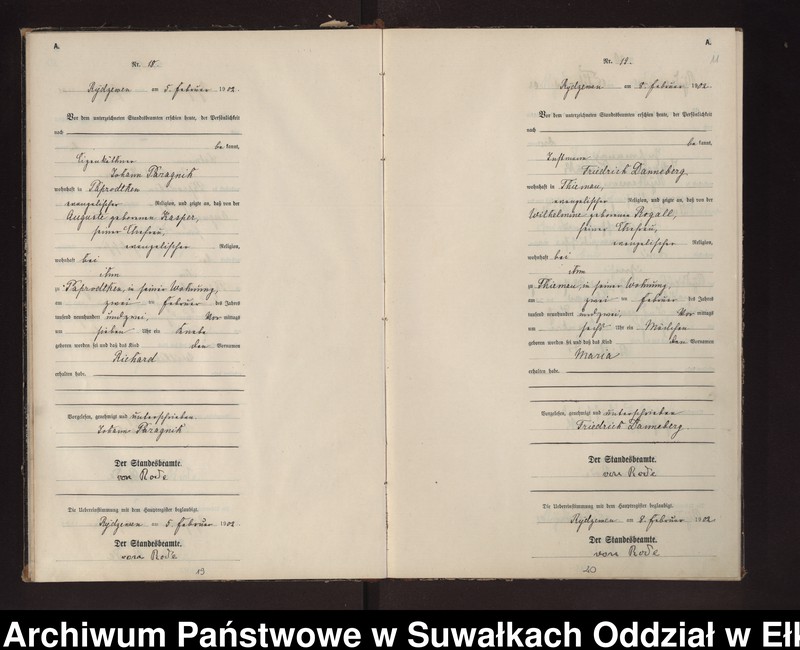 A.
Nr. 18.
Rydzewen am 5. Februar 1902.
Vor dem unterzeichneten Standesbeamten erschien heute, der Persönlichkeit
nach
be kannt,
Eigenkäthner
Johann Paragnik
wohnhaft in Paprodtken
evangelischer Religion, und zeigte an, daß von der
Auguste geborenen Kasper,
seiner Ehefrau,
evangelischer Religion,
wohnhaft bei
ihm
zu Paprodtken, in seiner Wohnung,
am zwei ten Februar des Jahres
tausend neunhundert und zwei, Vor mittags
um sieben Uhr ein Knabe
geboren worden sei und daß das Kind den Vornamen
Richard
erhalten habe.
Vorgelesen, genehmigt und unterschrieben.
Johann Paragnik
Der Standesbeamte.
von Rode
Die Uebereinstimmung mit dem Hauptregister beglaubigt.
Rydzewen am 5. Februar 1902.
Der Standesbeamte.
von Rode
19
A.
11
Nr. 19.
Rydzewen am 8. Februar 1902.
Vor dem unterzeichneten Standesbeamten erschien heute, der Persönlichkeit
nach
be kannt,
Instmann
Friedrich Danneberg
wohnhaft in Thiemau,
evangelischer Religion, und zeigte an, daß von der
Wilhelmine geborene Rogall,
seiner Ehefrau,
evangelischer Religion,
wohnhaft bei
ihm
zu Thiemau, in seiner Wohnung,
am zwei ten Februar des Jahres
tausend neunhundert und zwei, Vor mittags
um sechs Uhr ein Mädchen
geboren worden sei und daß das Kind den Vornamen
Maria
erhalten habe.
Vorgelesen, genehmigt und unterschrieben
Friedrich Danneberg.
Der Standesbeamte.
von Rode
Die Uebereinstimmung mit dem Hauptregister beglaubigt.
Rydzewen am 8. Februar 1902
Der Standesbeamte.
von Rode
20
Archiwum Państwowe w Suwałkach Oddział w Ełk